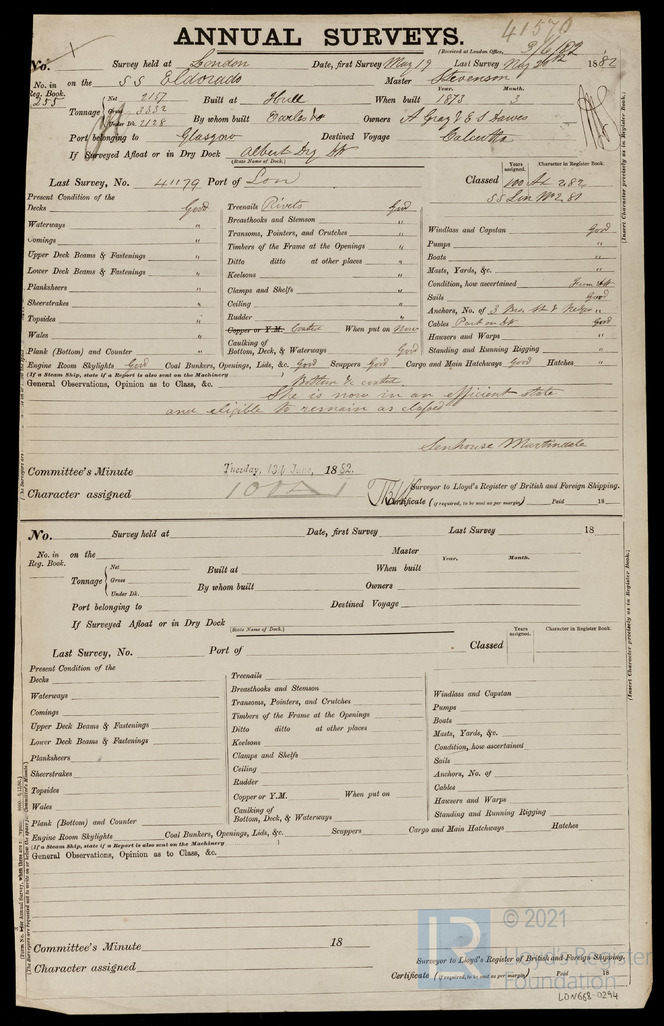 ANNUAL SURVEYS.
41570
(Received at London Office, 3/6/82
No. 1 Survey held at London Date, first Survey May 19 Last Survey May 26th 1882
No. in Reg. Book. 255 on the SS Eldorado Master Stevenson
Tonnage { Net 2157 Gross 3332 Under Dk. 2128 Built at Hull When built Year. 1873 Month. 3
By whom built Earles Co Owners A Gray & E S Dawes
Port belonging to Glasgow Destined Voyage Calcutta
If Surveyed Afloat or in Dry Dock Albert Dry Dk
(State Name of Dock.)
Last Survey, No. 41179 Port of Lon Classed Years assigned. Character in Register Book. 100 A1 2,82
SS Lon No 2.81
(Insert Character precisely as in Register Book.)
Present Condition of the
Decks Good
Waterways "
Comings "
Upper Deck Beams & Fastenings "
Lower Deck Beams & Fastenings "
Planksheers "
Sheerstrakes "
Topsides "
Wales "
Plank (Bottom) and Counter "
Treenails Rivets Good
Breasthooks and Stemson "
Transoms, Pointers, and Crutches "
Timbers of the Frame at the Openings "
Ditto ditto at other places "
Keelsons "
Clamps and Shelfs "
Ceiling "
Rudder "
Copper or Y.M. Coated When put on Now
Caulking of Bottom, Deck, & Waterways Good
Windlass and Capstan Good
Pumps "
Boats "
Masts, Yards, &c. "
Condition, how ascertained From Dk
Sails Good
Anchors, No. of 3 Bow, St & Kedges "
Cables Part on Dk Good
Hawsers and Warps "
Standing and Running Rigging "
Engine Room Skylights Good Coal Bunkers, Openings, Lids, &c. Good Scuppers Good Cargo and Main Hatchways Good Hatches "
(If a Steam Ship, state if a Report is also sent on the Machinery )
General Observations, Opinion as to Class, &c. Bottom &c coated
She is now in an efficient state
and eligible to remain as classed
Senhouse Martindale
Committee's Minute Tuesday, 13th June, 1882.
Surveyor to Lloyd's Register of British and Foreign Shipping.
Character assigned 100A1
Certificate (if required, to be sent as per margin) Paid 18
No. Survey held at Date, first Survey Last Survey 18
No. in Reg. Book. on the Master
Tonnage { Net Gross Under Dk. Built at When built Year. Month.
By whom built Owners
Port belonging to Destined Voyage
If Surveyed Afloat or in Dry Dock
(State Name of Dock.)
Last Survey, No. Port of Classed Years assigned. Character in Register Book.
(Insert Character precisely as in Register Book.)
Present Condition of the
Decks
Waterways
Comings
Upper Deck Beams & Fastenings
Lower Deck Beams & Fastenings
Planksheers
Sheerstrakes
Topsides
Wales
Plank (Bottom) and Counter
Treenails
Breasthooks and Stemson
Transoms, Pointers, and Crutches
Timbers of the Frame at the Openings
Ditto ditto at other places
Keelsons
Clamps and Shelfs
Ceiling
Rudder
Copper or Y.M. When put on
Caulking of Bottom, Deck, & Waterways
Windlass and Capstan
Pumps
Boats
Masts, Yards, &c.
Condition, how ascertained
Sails
Anchors, No. of
Cables
Hawsers and Warps
Standing and Running Rigging
Engine Room Skylights Coal Bunkers, Openings, Lids, &c. Scuppers Cargo and Main Hatchways Hatches
(If a Steam Ship, state if a Report is also sent on the Machinery )
General Observations, Opinion as to Class, &c.
Committee's Minute 18
Surveyor to Lloyd's Register of British and Foreign Shipping.
Character assigned
Certificate (if required, to be sent as per margin) Paid 18
© 2021
Lloyd's Register
Foundation
LON668-0294